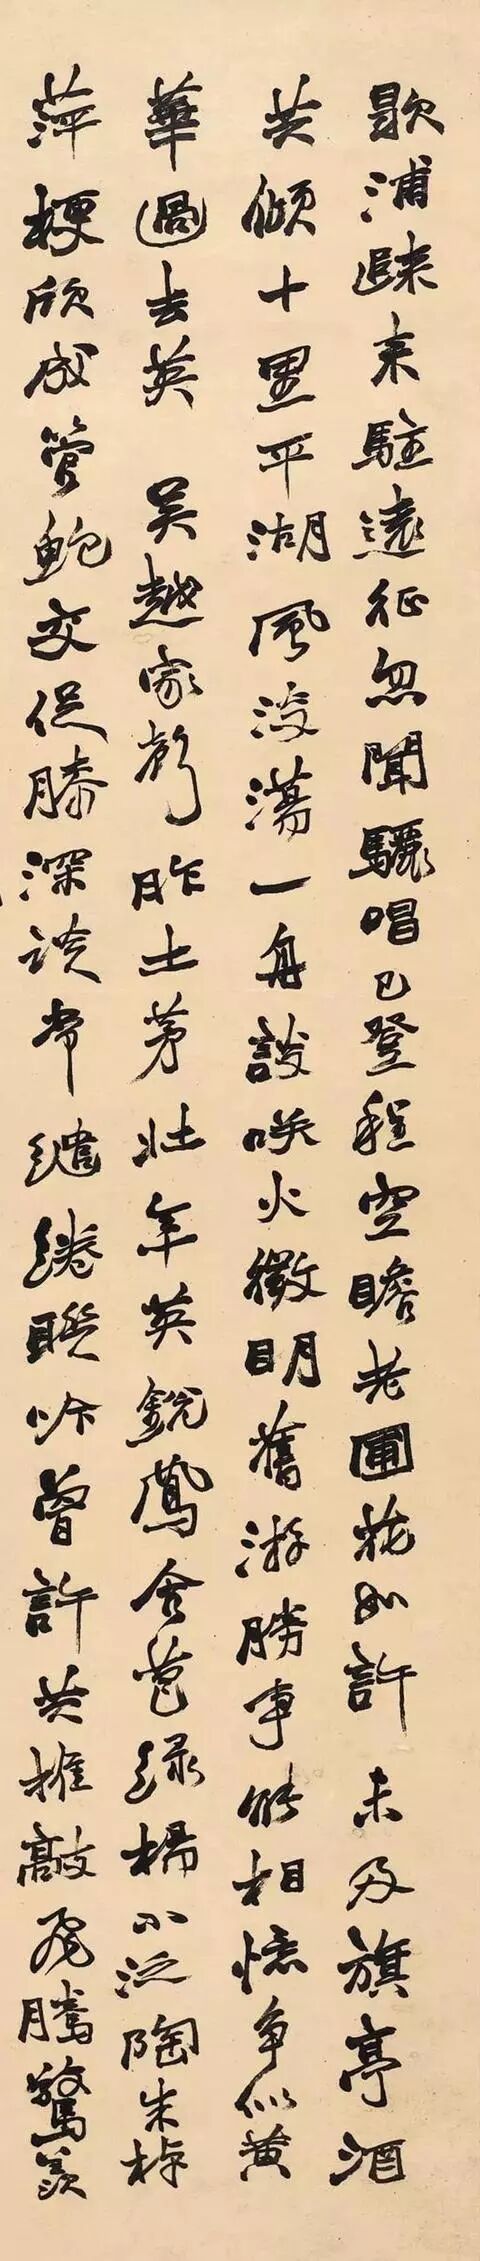 歇浦歸來駐遠征忽聞驪唱已登程空瞻老圃花如許未及旗亭酒
共傾十里平湖風淡蕩一舟談笑火微明舊游勝事能相憶爭似黃
華過去英吳越家聲昨土茅壯年英銳鳳含苞綠楊小泛陶朱棹
萍梗欣成管鮑交促膝深談常繾綣聯吟曾許共推敲飛騰驚羨